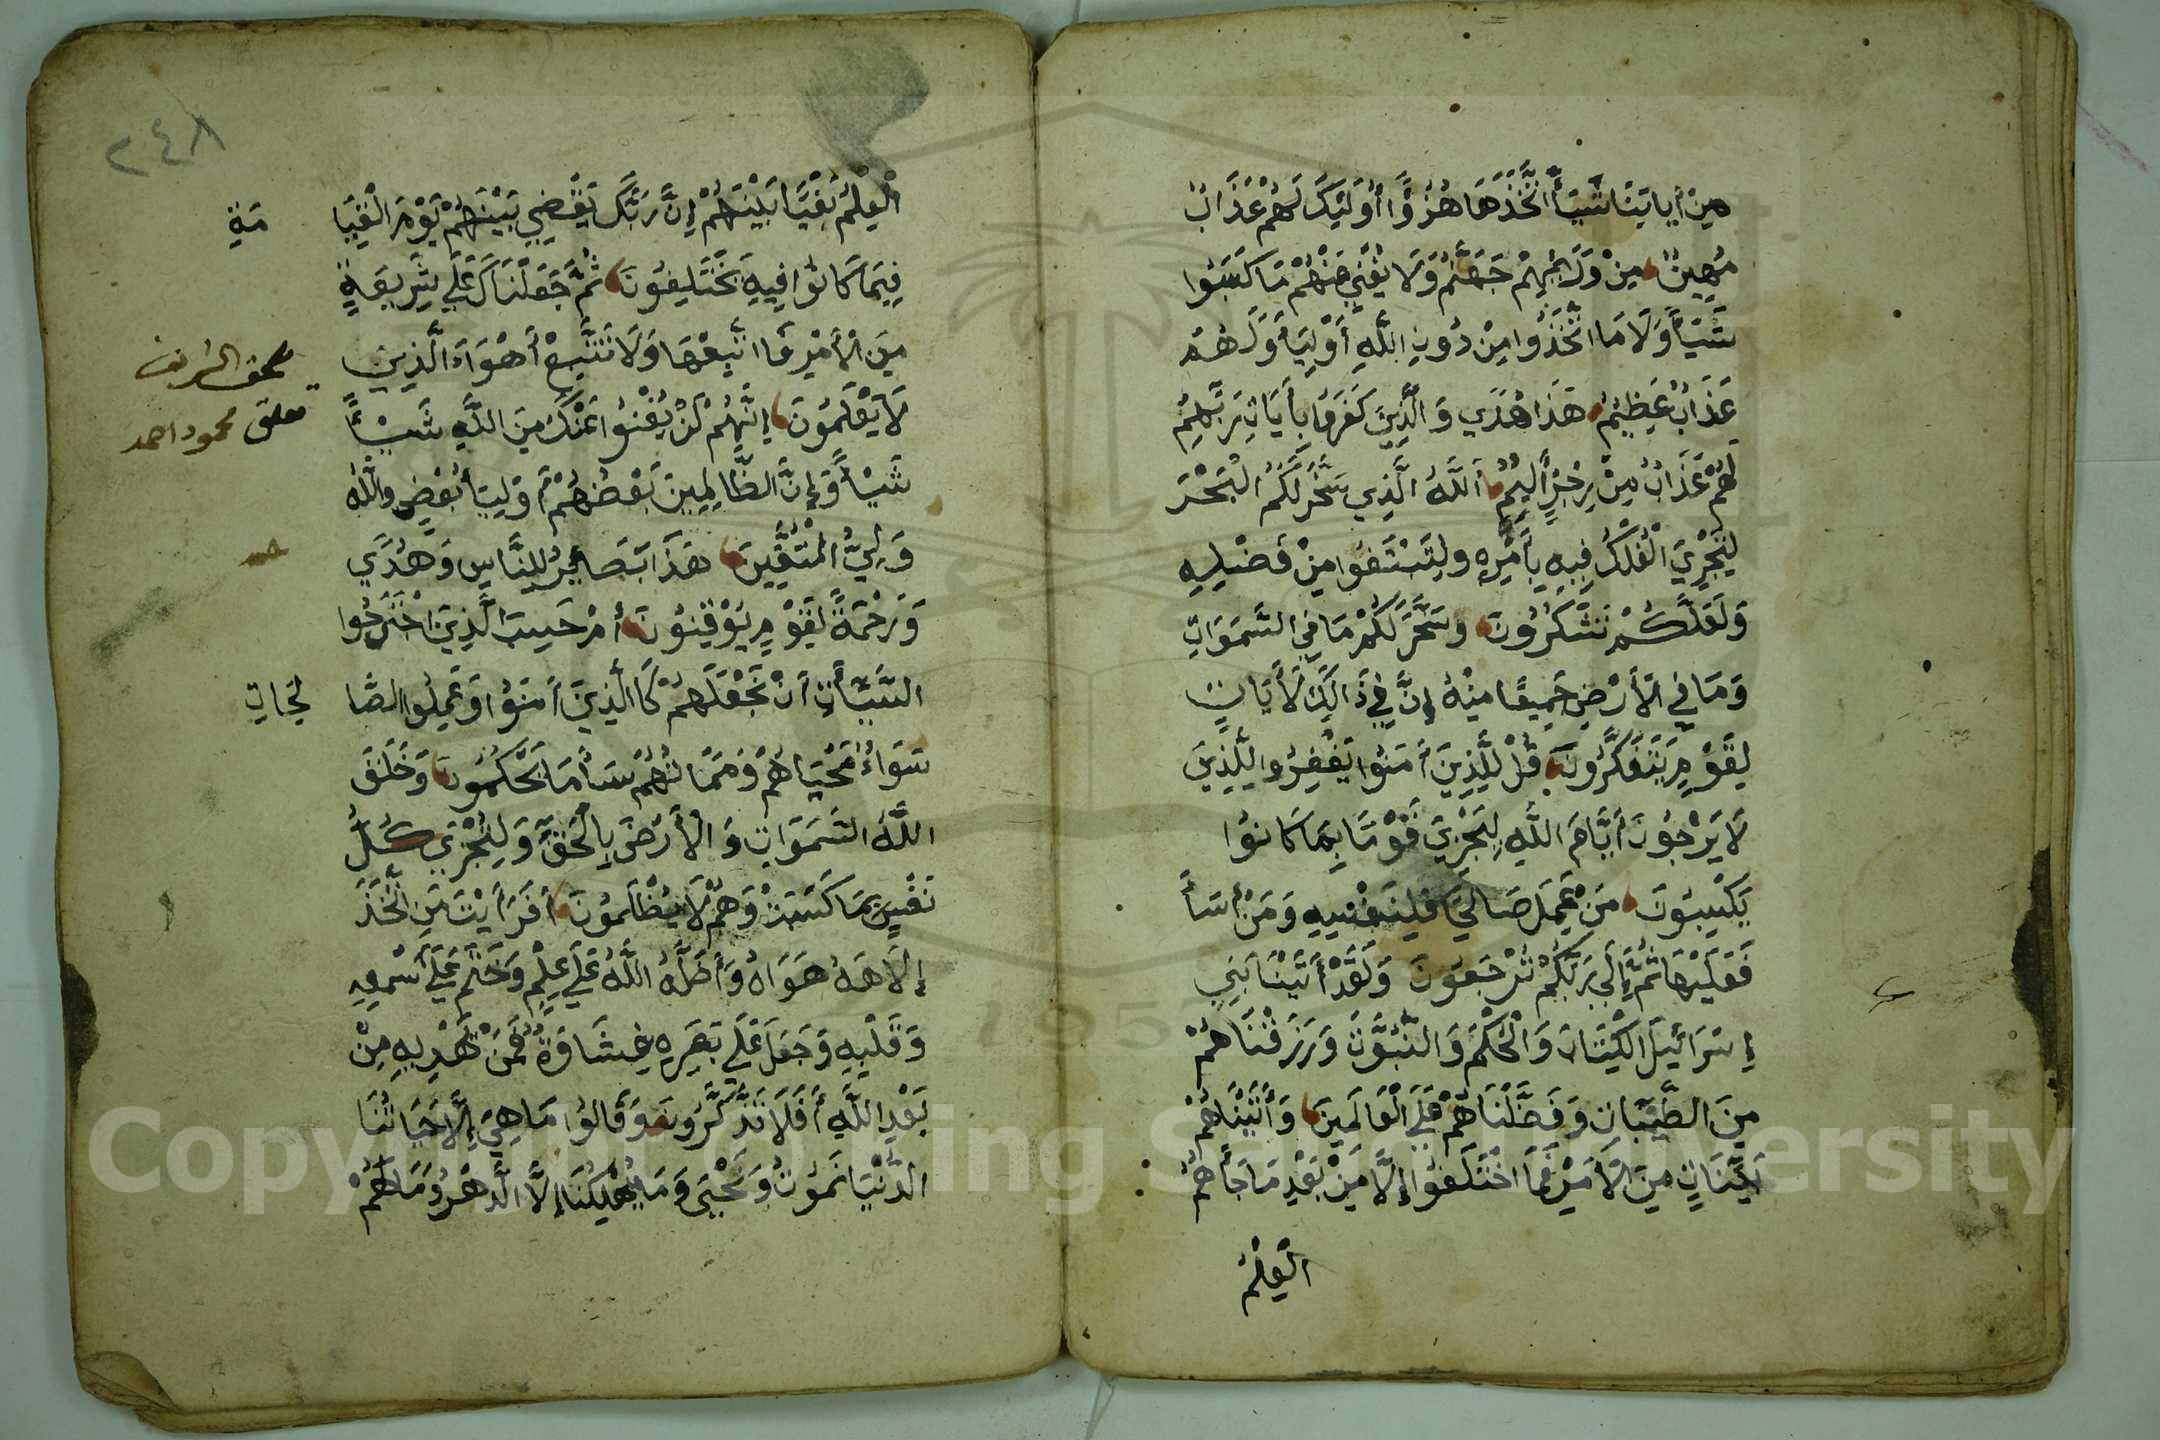 مِنْ أٰيَاتِنَا شَيْأً اتَّخَذَهَا هُزُوًا أُولَئِكَ لَهُمْ عَذَابٌ
مُهِينٌ مِنْ وَرَائِهِمْ جَهَنَّمُ وَلَا يُغْنِي عَنْهُمْ مَا كَسَبُوا
شَيْأً وَلَا مَا اتَّخَذُوا مِنْ دُونِ اللَّهِ أَوْلِيَأَ وَلَهُمْ
عَذَابٌ عَظِيمٌ هَذَا هُدًي وَالَّذِينَ كَفَرُوا بِأَيَاتِ رَبِّهِمْ
لَهُمْ عَذَابٌ مِنْ رِجْزٍ أَلِيمٌ اَللَّهُ الَّذِي سَخَّرَ لَكُمُ الْبَحْرَ
لِتَجْرِيَ الْفُلْكُ فِيهِ بِأَمْرِهِ وَلِتَبْتَغُوا مِنْ فَضْلِهِ
وَلَعَلَّكُمْ تَشْكُرُونَ وَسَخَّرَ لَكُمْ مَا فِي السَّمَوَاتِ
وَمَا فِي الْأَرْضِ جَمِيعًا مِنْهُ إِنَّ فِي ذَالِكَ لَأَيَاتٍ
لِقَوْمٍ يَتَفَكَّرُونَ قُلْ لِلَّذِينَ أَمَنُوا يَغْفِرُوا لِلَّذِينَ
لَا يَرْجُونَ أَيَّامَ اللَّهِ لِيَجْزِيَ قَوْمًا بِمَا كَانُوا
يَكْسِبُونَ مَنْ عَمِلَ صَالِحًا فَلِنَفْسِهِ وَمَنْ أَسَأَ
فَعَلَيْهَا ثُمَّ إِلَى رَبِّكُمْ تُرْجَعُونَ وَلَقَدْ أَتَيْنَا بَنِي
إِسْرَائِيلَ الْكِتَابَ وَالْحُكْمَ وَالنُّبُوَّتَ وَرَزَقْنَاهُمْ
مِنَ الطَّيِّبَاتِ وَفَضَّلْنَاهُمْ عَلَي الْعَالَمِينَ وَأَتَيْنَاهُمْ
بَيِّنَاتٍ مِنَ الْأَمْرِ فَمَا اخْتَلَفُوا إِلَّا مِنْ بَعْدِ مَا جَأَهُمُ
الْعِلْمُ
٢٤٨
الْعِلْمُ بَغْيًا بَيْنَهُمْ إِنَّ رَبَّكَ يَقْضِي بَيْنَهُمْ يَوْمَ الْقِيَا مَةِ
فِيمَا كَانُوا فِيهِ يَخْتَلِفُونَ ثُمَّ جَعَلْنَاكَ عَلَي شَرِيعَةٍ
مِنَ الْأَمْرِ فَاتَّبِعْهَا وَلَا تَتَّبِعْ أَهْوَاءَ الَّذِينَ
لَا يَعْلَمُونَ إِنَّهُمْ لَنْ يُغْنُوا عَنْكَ مِنَ اللَّهِ شَيْئًا
محمود احمد
شَيْأً وَإِنَّ الظَّالِمِينَ بَعْضُهُمْ أَوْلِيَأُ بَعْضٍ وَاللَّهُ
وَلِيُّ الْمُتَّقِينَ هَذَا بَصَائِرُ لِلنَّاسِ وَهُدًي
وَرَحْمَةً لِقَوْمٍ يُوْقِنُونَ أَمْ حَسِبَ الَّذِينَ اجْتَرَحُوا
السَّيِّأَتِ أَنْ نَجْعَلَهُمْ كَالَّذِينَ أَمَنُوا وَعَمِلُوا الصَّا لِحَاتِ
سَوَاءً مَحْيَاهُمْ وَمَمَاتُهُمْ سَأَ مَا يَحْكُمُونَ وَخَلَقَ
اللَّهُ السَّمَوَاتِ وَالْأَرْضَ بِالْحَقِّ وَلِتُجْزَي كُلُّ
نَفْسٍ بِمَا كَسَبَتْ وَهُمْ لَا يُظْلَمُونَ أَفَرَأَيْتَ مَنِ اتَّخَذَ
إِلَاهَهُ هَوَاهُ وَأَضَلَّهُ اللَّهُ عَلَي عِلْمٍ وَخَتَمَ عَلَي سَمْعِهِ
وَقَلْبِهِ وَجَعَلَ عَلَي بَصَرِهِ غِشَاوَةً فَمَنْ يَهْدِيهِ مِنْ
بَعْدِ اللَّهِ أَفَلَا تَذَكَّرُونَ وَقَالُوا مَا هِيَ إِلَّا حَيَاتُنَا
الدُّنْيَا نَمُوتُ وَنَحْيَى وَمَا يُهْلِكُنَا إِلَّا الدَّهْرُ وَمَا لَهُمْ
1957
Copyright © King Saud University